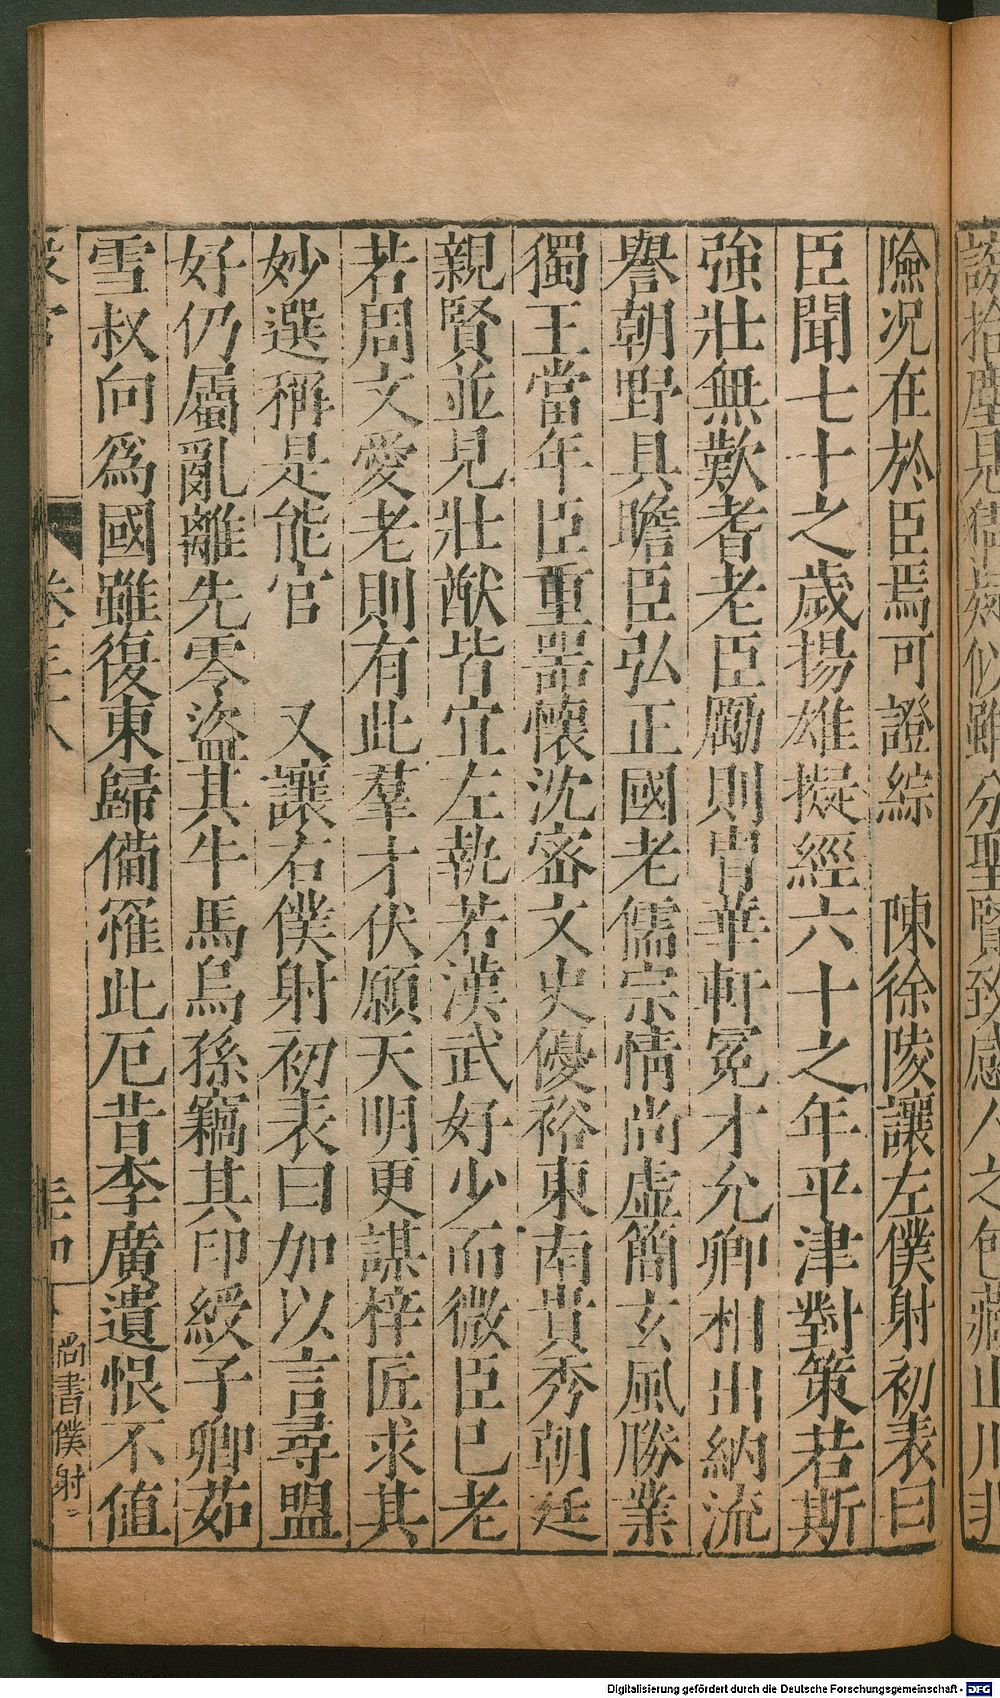 險况在於臣焉可證綜　陳徐陵讓左僕射初表曰
臣聞七十之歲揚雄擬經六十之年平津對策若斯
強壯無歎耆老臣勵則胄華軒冕才允卿相出納流
譽朝野具瞻臣弘正國老儒宗情尚虚簡玄風勝業
獨王當年臣重噐懷沈密文史優裕東南貴秀朝廷
親賢並見壯猷皆宜左執若漢武好少而微臣已老
若周文愛老則有此羣才伏願天明更謀梓匠求其
妙選稱是能官　又讓右僕射初表曰加以言尋盟
好仍屬亂離先零盗其牛馬烏孫竊其印綬子卿茹
雪叔向爲國雖復東歸備罹此厄昔李廣遺恨不值
設官
卷三八
三四
尚書僕射二
Digitalisierung gefördert durch die Deutsche Forschungsgemeinschaft - DFG